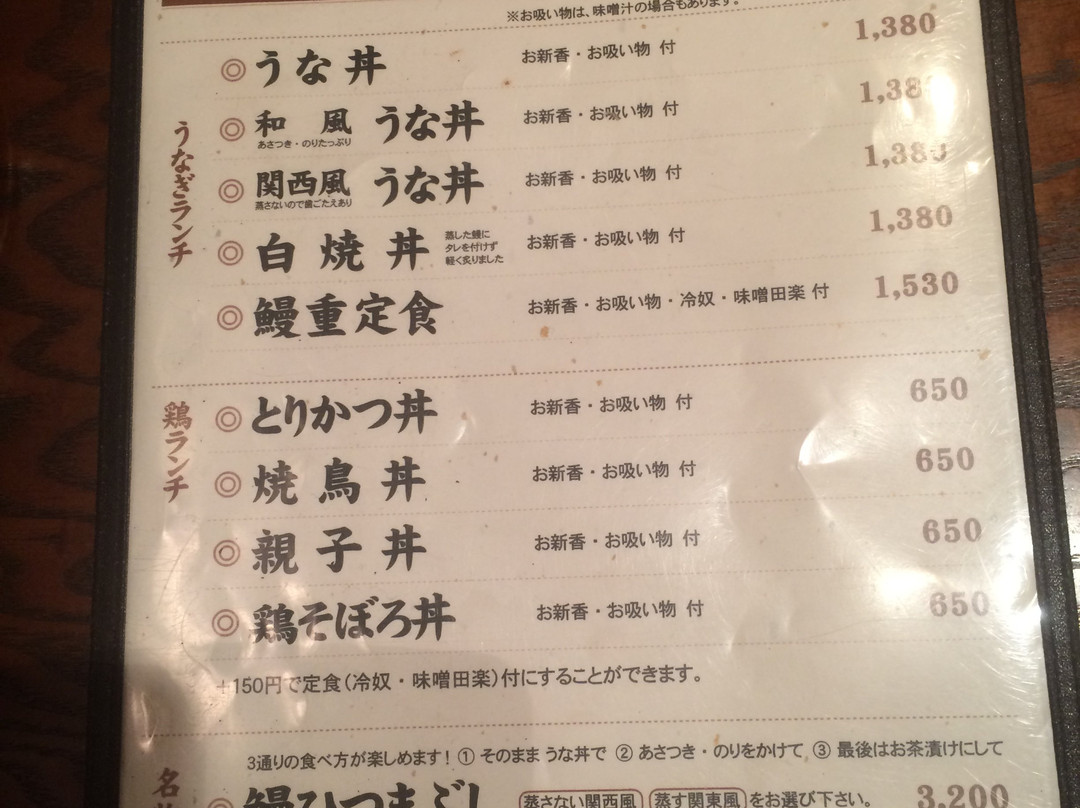 ※お吸い物は、味噌汁の場合もあります。
うなぎランチ
◎ うな丼 お新香・お吸い物 付 1,380
◎ 和風 うな丼 お新香・お吸い物 付 1,38
あさつき・のりたっぷり
◎ 関西風 うな丼 お新香・お吸い物 付 1,380
蒸さないので歯ごたえあり
◎ 白焼丼 蒸した鰻に お新香・お吸い物 付 1,380
タレを付けず
軽く炙りました
◎ 鰻重定食 お新香・お吸い物・冷奴・味噌田楽 付 1,530
鶏ランチ
◎ とりかつ丼 お新香・お吸い物 付 650
◎ 焼鳥丼 お新香・お吸い物 付 650
◎ 親子丼 お新香・お吸い物 付 650
◎ 鶏そぼろ丼 お新香・お吸い物 付 650
+150円で定食(冷奴・味噌田楽)付にすることができます。
名
3通りの食べ方が楽しめます! ① そのまま うな丼で ② あさつき・のりをかけて ③ 最後はお茶漬けにして
◎ 鰻ひつまぶし 蒸さない関西風 蒸す関東風 をお選び下さい。 3,200